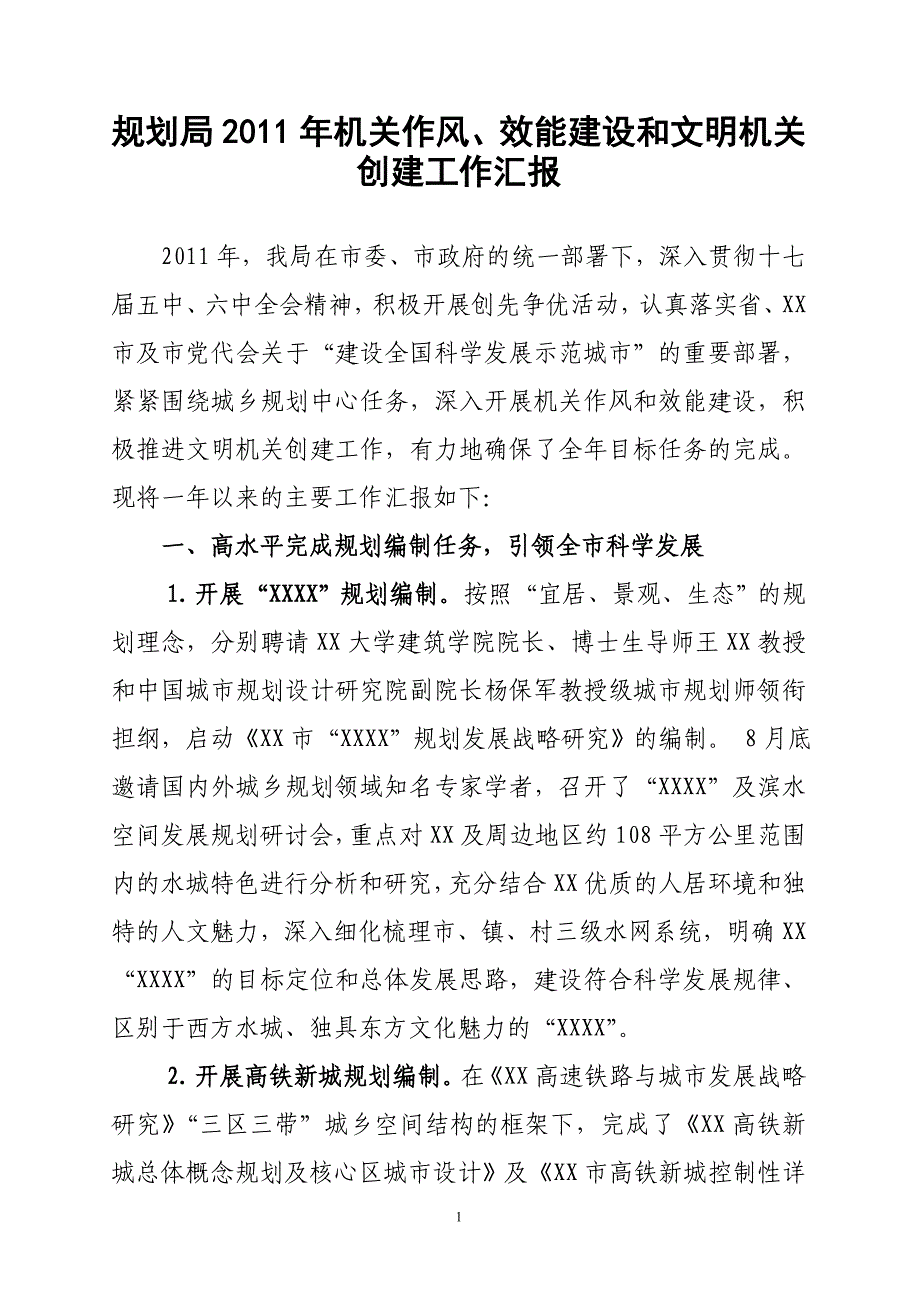 规划局2011年机关作风、效能建设和文明机关
创建工作汇报
2011年，我局在市委、市政府的统一部署下，深入贯彻十七
届五中、六中全会精神，积极开展创先争优活动，认真落实省、XX
市及市党代会关于“建设全国科学发展示范城市”的重要部署，
紧紧围绕城乡规划中心任务，深入开展机关作风和效能建设，积
极推进文明机关创建工作，有力地确保了全年目标任务的完成。
现将一年以来的主要工作汇报如下：
一、高水平完成规划编制任务，引领全市科学发展
1.开展“XXXX”规划编制。按照“宜居、景观、生态”的规
划理念，分别聘请XX大学建筑学院院长、博士生导师王XX教授
和中国城市规划设计研究院副院长杨保军教授级城市规划师领衔
担纲，启动《XX市“XXXX”规划发展战略研究》的编制。 8月底
邀请国内外城乡规划领域知名专家学者，召开了“XXXX”及滨水
空间发展规划研讨会，重点对XX及周边地区约108平方公里范围
内的水城特色进行分析和研究，充分结合XX优质的人居环境和独
特的人文魅力，深入细化梳理市、镇、村三级水网系统，明确XX
“XXXX”的目标定位和总体发展思路，建设符合科学发展规律、
区别于西方水城、独具东方文化魅力的“XXXX”。
2.开展高铁新城规划编制。在《XX高速铁路与城市发展战略
研究》“三区三带”城乡空间结构的框架下，完成了《XX高铁新
城总体概念规划及核心区城市设计》及《XX市高铁新城控制性详
1